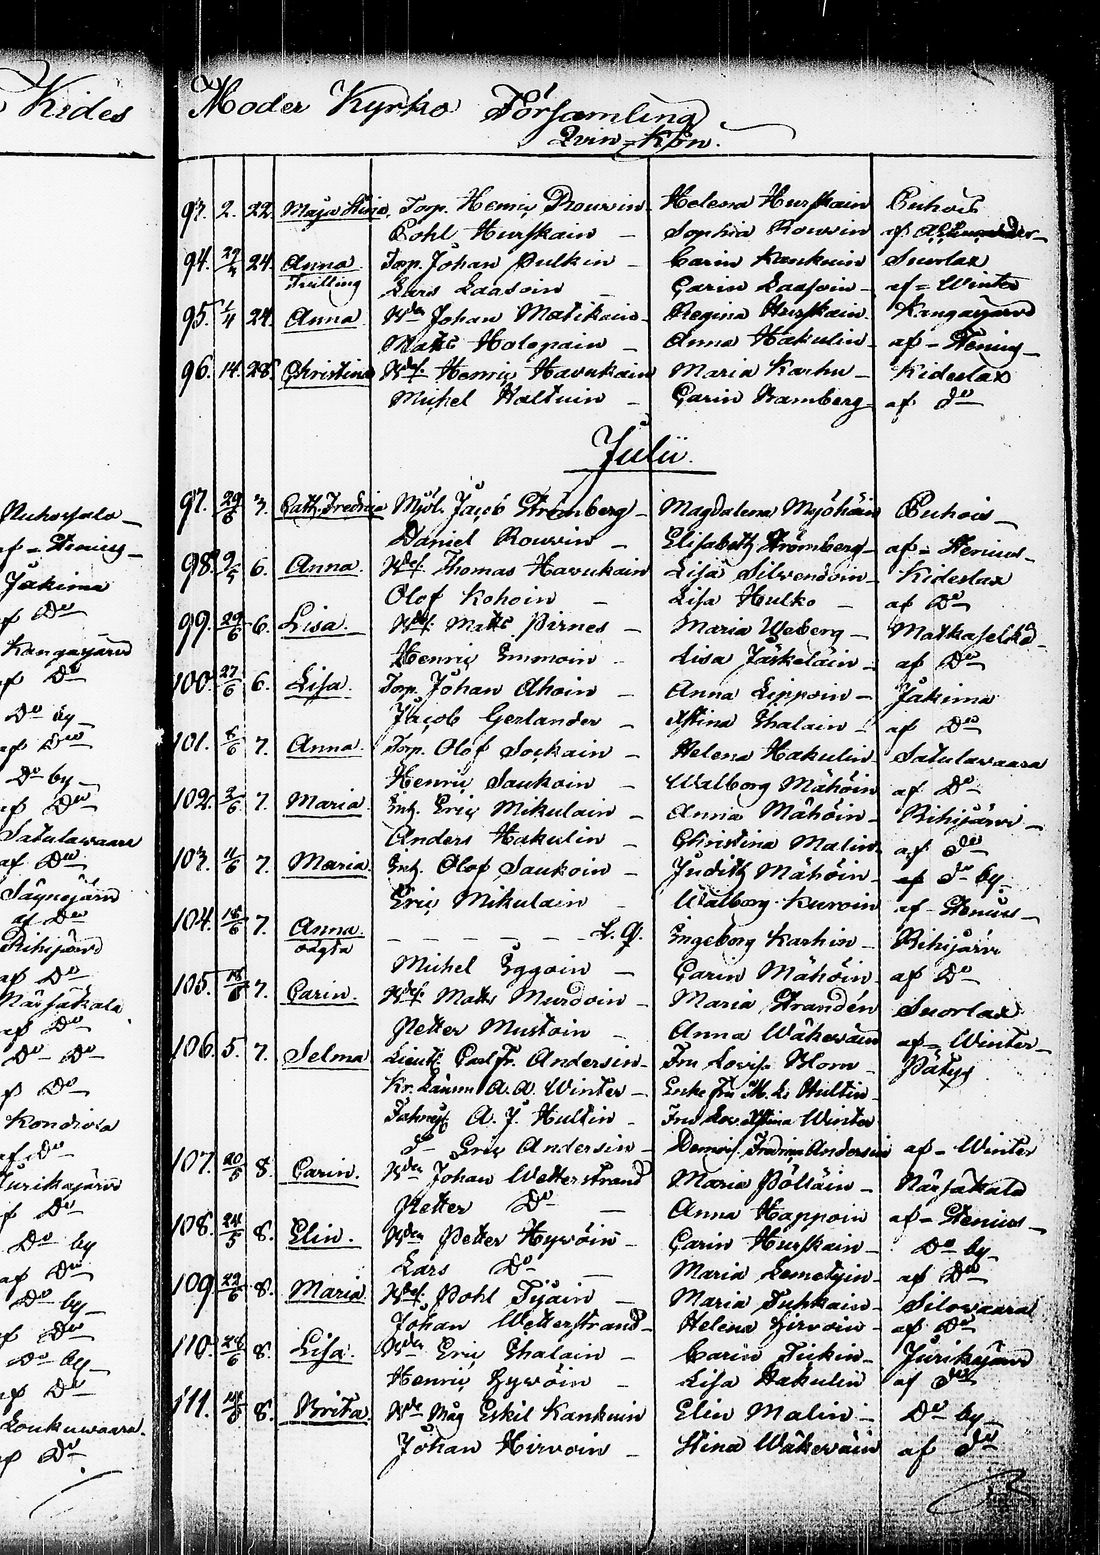 Kides
Moder Kyrko Församling
Qvin-Kön.
93. 2. 22. Maja Stina Torp. Henric Rouvin Helena Hurskain Puhois
Pohl Hurskain – Sophia Rouvin af
94. 24. Anna Torp. Johan Pulkin – Carin Kankuin Suorlax
Tvilling Lars Laasoin – Carin Laasoin – af – Winter
95. 1/4 24. Anna Johan Matikain – Regina Hurskain Kangasjärvi
Matts Holopain – Anna Hakulin – af – Stenius –
96. 14. 28. Christina Henric Havukain Maria Karhu – Kideslax
Michel Haltuin – Carin Ramberg – af Do
Julii.
97. 29/6 3. Cath. Fredrica Mjöl. Jacob Strömberg – Magdalena Mojöhäin Puhois –
Daniel Rouvin – Elisabeth Strömberg – af – Stenius –
98. 6. Anna Thomas Havukain Lisa Silvendoin – Kideslax
Olof Kohoin – Lisa Hulko – af Do
99. 29/6 6. Lisa. Matts Pirnes – Maria Weberg – Matkaselkä –
Henric Immoin – Lisa Jäskeläin – af Do
100. 27/6 6. Lisa. Torp. Johan Ahoin – Anna Lippoin – Jakima
Jacob Gerlander – Stina Ihalain – af Do
101. 7. Anna Torp. Olof Sockain – Helena Hakulin – Satulavaara
Henric Saukoin – Walborg Mähöin af Do
102. 7. Maria Inh. Eric Mikulain – Anna Mähöin – Riihijärvi –
Anders Hakulin – Christina Malin – af Do
103. 11/6 7. Maria Inh. Olof Saukoin – Judith Mähöin – af Do by
Eric Mikulain – Walborg Kurvin af – Stenius –
104. 18/6 7. Anna Ingeborg Karhin – Riihijärvi
oägta Michel Eggoin – Carin Mähöin – af Do
105. 18/6 7. Carin. Matts Murdoin – Maria Strandén Suorlax
Petter Mustoin – Anna Wäkeväin af – Winter –
106. 5. 7. Selma Lieut. Carl Fr. Andersin – Fru Lovisa Blom – Pätys
Kr. Länsm A. A. Winter – Enkefru M. L. Hultin –
A. J. Hultin – Fru Lov. Stina Winter
Do Eric Andersin – Demois. Fredrica Andersin af – Winter
107. 20/5 8. Carin. Johan Wetterstrand Maria Pölläin – Närsäkälä
Petter Do – Anna Happoin af – Stenius –
108. 24/5 8. Elin. Petter Hyvöin – Carin Hurskain – Do by –
Lars Do – Maria Lemetyin – af Do
109. 22/6 8. Maria Pohl Tijain – Maria Tuhkain – Silovaara
Johan Wetterstrand – Helena Hirvoin – af Do
110. 28/6 8. Lisa. Eric Ihalain – Carin Tickin – Jurikajärvi
Henric Hyvöin – Lisa Hakulin af Do
111. 8. Brita. Eskil Kankuin Elin Malin – Do by –
Johan Hirvoin – Stina Wäkeväin af Do
af – Stenius –
Jakima
af Do
Kangasjärvi
af Do
Do by –
af Do
Do by –
af Do
Satulavaara
af Do
Säynejärvi
af Do
Riihijärvi
af Do
Närsäkälä.
af Do
Do Do
af Do
af Do
Jurikajärvi
af Do
Do by
af Do
Do by –
af Do
Do by –
af Do
Loukuvaara.
af Do